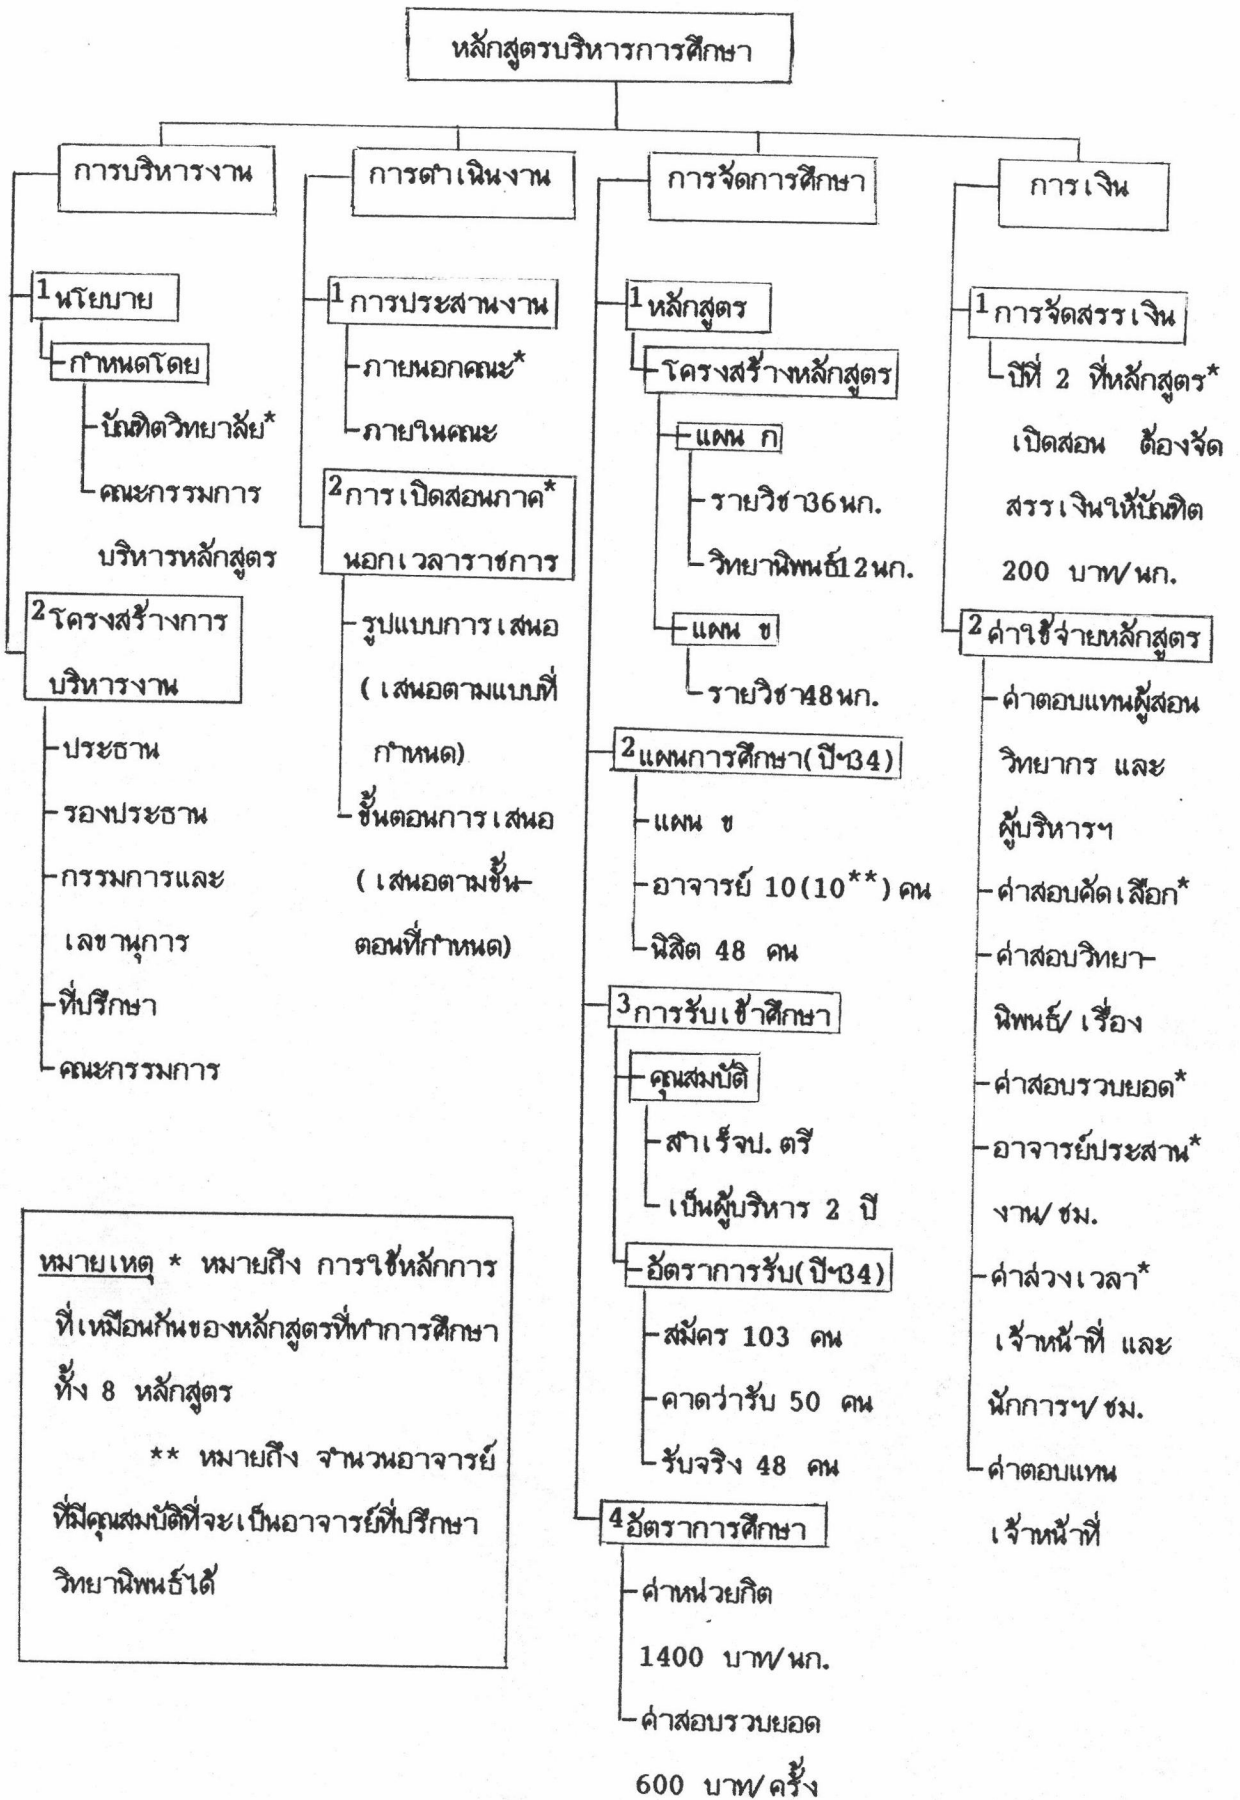 หลักสูตรบริหารการศึกษา
การบริหารงาน
1 นโยบาย
กำหนดโดย
บัณฑิตวิทยาลัย*
คณะกรรมการ
บริหารหลักสูตร
2 โครงสร้างการ
บริหารงาน
ประธาน
รองประธาน
กรรมการและ
เลขานุการ
ที่ปรึกษา
คณะกรรมการ
การดำเนินงาน
1 การประสานงาน
ภายนอกคณะ*
ภายในคณะ
2 การเปิดสอนภาค*
นอกเวลาราชการ
รูปแบบการเสนอ
(เสนอตามแบบที่
กำหนด)
ขั้นตอนการเสนอ
(เสนอตามขั้น-
ตอนที่กำหนด)
การจัดการศึกษา
1 หลักสูตร
โครงสร้างหลักสูตร
แผน ก
รายวิชา36นก.
วิทยานิพนธ์12นก.
แผน ข
รายวิชา48นก.
2 แผนการศึกษา(ปีฯ34)
แผน ข
อาจารย์ 10(10**)คน
นิสิต 48 คน
3 การรับเข้าศึกษา
คุณสมบัติ
สำเร็จป.ตรี
เป็นผู้บริหาร 2 ปี
อัตราการรับ(ปีฯ34)
สมัคร 103 คน
คาดว่ารับ 50 คน
รับจริง 48 คน
4 อัตราการศึกษา
ค่าหน่วยกิต
1400 บาท/นก.
ค่าสอบรวบยอด
600 บาท/ครั้ง
การเงิน
1 การจัดสรรเงิน
ปีที่ 2 ที่หลักสูตร*
เปิดสอน ต้องจัด
สรรเงินให้บัณฑิต
200 บาท/นก.
2 ค่าใช้จ่ายหลักสูตร
ค่าตอบแทนผู้สอน
วิทยากร และ
ผู้บริหารฯ
ค่าสอบคัดเลือก*
ค่าสอบวิทยา-
นิพนธ์/เรื่อง
ค่าสอบรวบยอด*
อาจารย์ประสาน*
งาน/ชม.
ค่าล่วงเวลา*
เจ้าหน้าที่ และ
นักการฯ/ชม.
ค่าตอบแทน
เจ้าหน้าที่
หมายเหตุ * หมายถึง การใช้หลักการ
ที่เหมือนกันของหลักสูตรที่ทำการศึกษา
ทั้ง 8 หลักสูตร
** หมายถึง จำนวนอาจารย์
ที่มีคุณสมบัติที่จะเป็นอาจารย์ที่ปรึกษา
วิทยานิพนธ์ได้